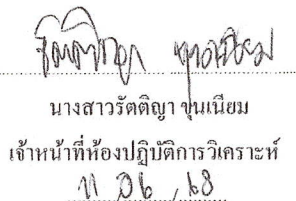 รัตติญา ขุนเนียม
นางสาวรัตติญา ขุนเนียม
เจ้าหน้าที่ห้องปฏิบัติการวิเคราะห์
11 06 / 68